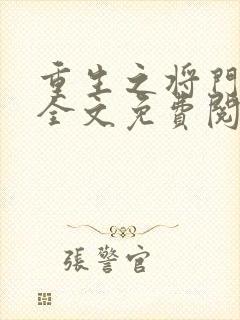 重生之将門
全文免費閱
張警官